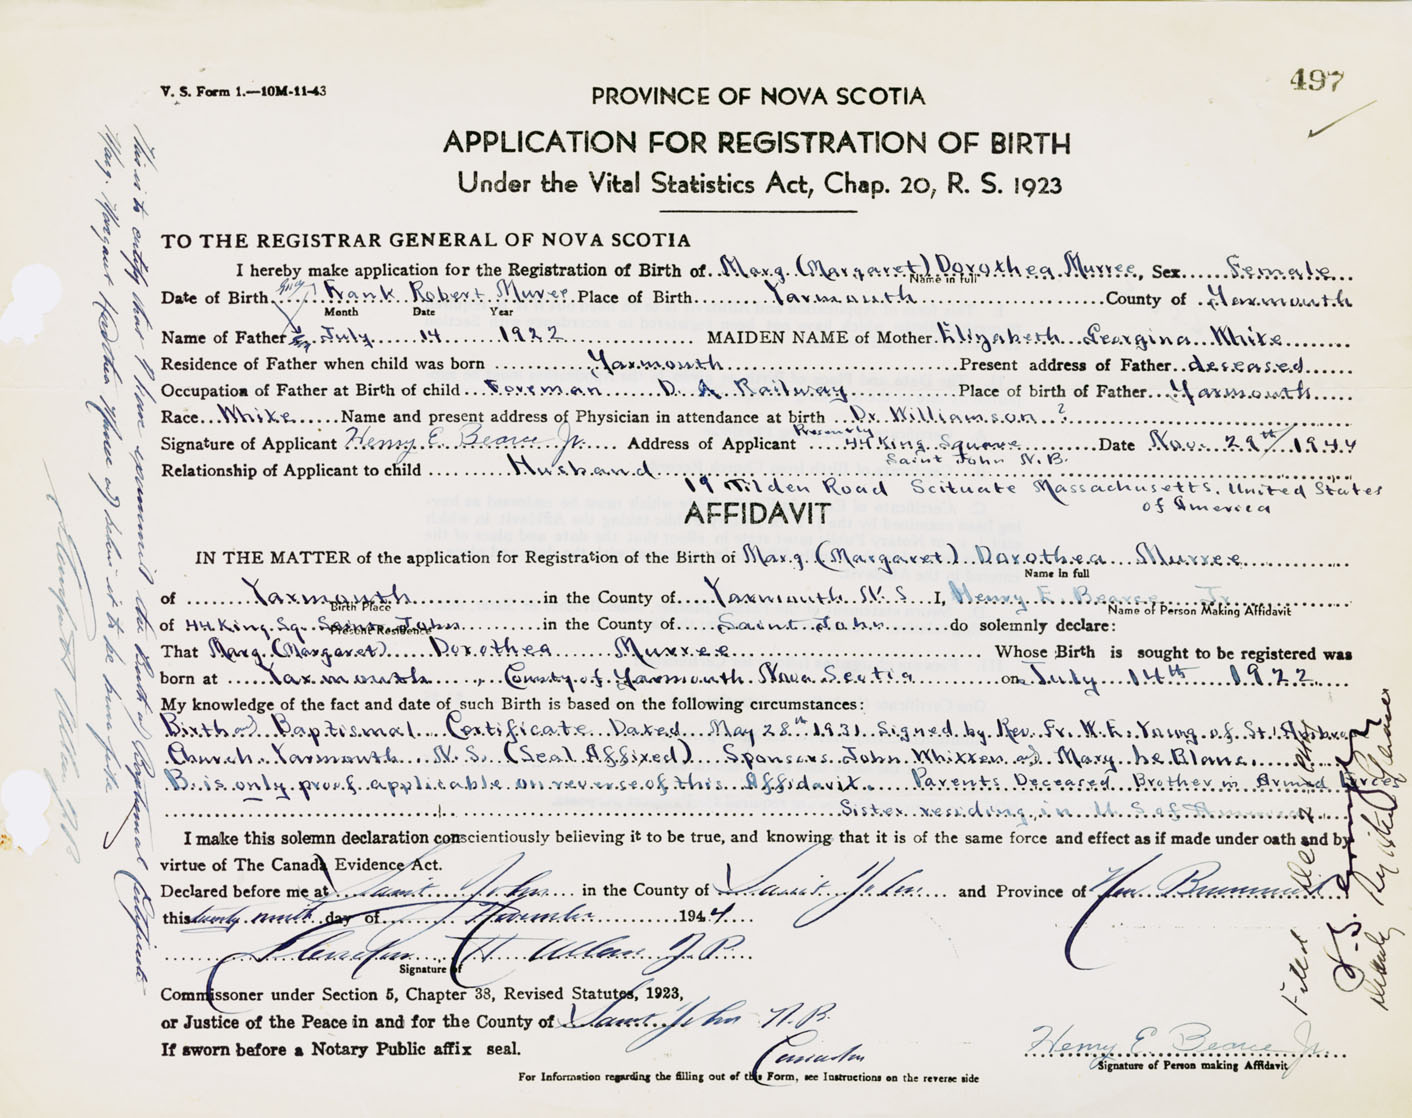 497
V. S. Form 1.—10M-11-43
PROVINCE OF NOVA SCOTIA
APPLICATION FOR REGISTRATION OF BIRTH
Under the Vital Statistics Act, Chap. 20, R. S. 1923
TO THE REGISTRAR GENERAL OF NOVA SCOTIA
I hereby make application for the Registration of Birth of Marg. (Margaret) Dorothea Murree, Sex Female
Name in full
Date of Birth Frank Robert Murree Place of Birth Yarmouth County of Yarmouth
Month Date Year
Name of Father July 14 1922 MAIDEN NAME of Mother Elizabeth Georgina White
Residence of Father when child was born Yarmouth Present address of Father deceased
Occupation of Father at Birth of child Foreman D. A. Railway Place of birth of Father Yarmouth
Race White Name and present address of Physician in attendance at birth Dr. Williamson ?
Signature of Applicant Henry E. Bearce Jr. Address of Applicant Presently 44 King Square Date Nov. 29th/1944
Saint John N.B.
Relationship of Applicant to child Husband
19 Tilden Road Scituate Massachusetts. United States
of America
AFFIDAVIT
IN THE MATTER of the application for Registration of the Birth of Marg. (Margaret) Dorothea Murree
Name in full
of Yarmouth in the County of Yarmouth N.S. I, Henry E. Bearce Jr.
Birth Place Name of Person Making Affidavit
of 44 King Sq. Saint John in the County of Saint John do solemnly declare:
Present Residence
That Marg. (Margaret) Dorothea Murree Whose Birth is sought to be registered was
born at Yarmouth County of Yarmouth Nova Scotia on July 14th 1922
My knowledge of the fact and date of such Birth is based on the following circumstances:
Birth and Baptismal Certificate Dated May 28th 1931. Signed by Rev. Fr. W. E. Young of St. Ambrose
Church Yarmouth N.S. (Seal Affixed) Sponsors John Whitten and Mary LeBlanc
B. is only proof applicable on reverse of this Affidavit. Parents Deceased Brother in Armed Forces
Sister residing in U.S. of America
I make this solemn declaration conscientiously believing it to be true, and knowing that it is of the same force and effect as if made under oath and by
virtue of The Canada Evidence Act.
Declared before me at Saint John in the County of Saint John and Province of New Brunswick
this twenty ninth day of November 1944
H. Allan J.P.
Signature of
Commissoner under Section 5, Chapter 38, Revised Statutes, 1923,
or Justice of the Peace in and for the County of Saint John N.B.
If sworn before a Notary Public affix seal.
Henry E. Bearce Jr.
Signature of Person making Affidavit
For Information regarding the filling out of this Form, see Instructions on the reverse side
This is to certify that I have examined the Birth and Baptismal Certificate
Filed Dec 2 1944
Deputy Registrar General